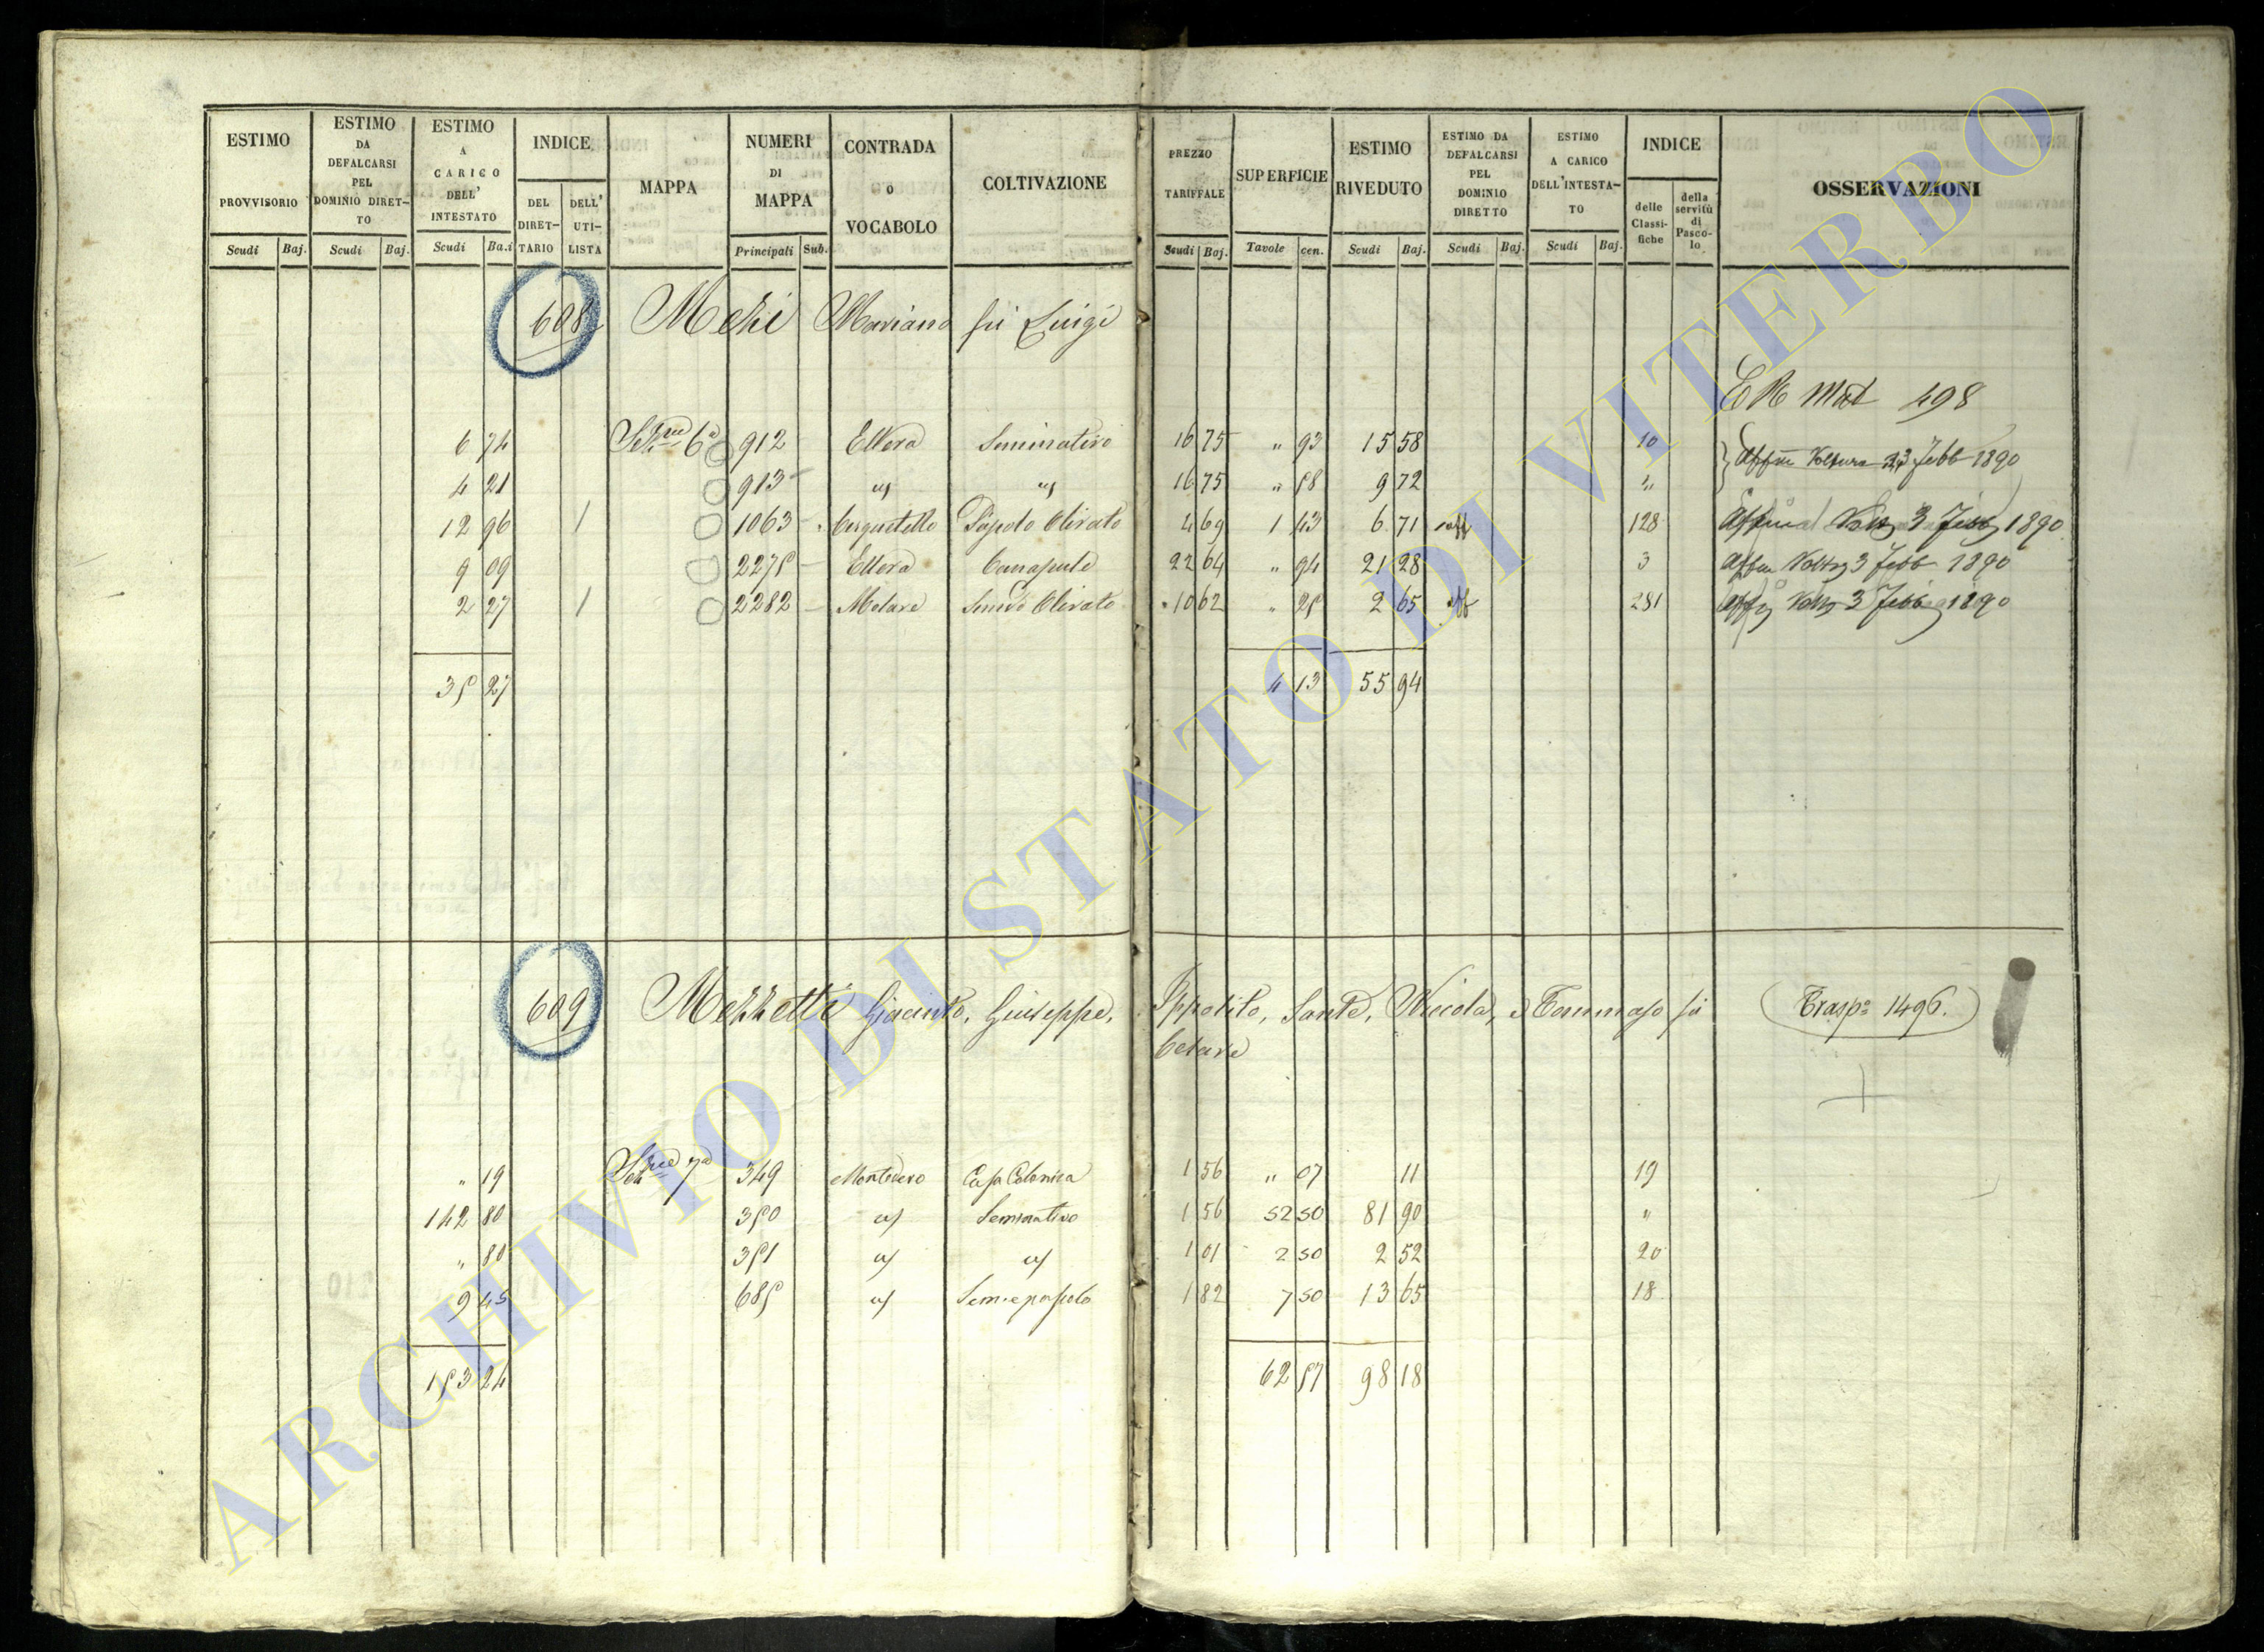 ESTIMO PROVVISORIO Scudi Baj. ESTIMO DA DEFALCARSI PEL DOMINIO DIRETTO Scudi Baj. ESTIMO A CARICO DELL' INTESTATO Scudi Ba.i INDICE DEL DIRETTARIO DELL' UTILISTA MAPPA NUMERI DI MAPPA Principali Sub. CONTRADA O VOCABOLO COLTIVAZIONE PREZZO TARIFFALE Scudi Baj. SUPERFICIE Tavole cen. ESTIMO RIVEDUTO Scudi Baj. ESTIMO DA DEFALCARSI PEL DOMINIO DIRETTO Scudi Baj. ESTIMO A CARICO DELL'INTESTATO Scudi Baj. INDICE delle Classifiche della servitù di Pascolo OSSERVAZIONI
608 Mariano fu Luigi
498
6 74 6a 912 Ellera Seminativo 16 75 " 93 15 58 10 Febb 1890
4 21 913 " 16 75 " 58 9 72 "
12 96 1 1063 Cerquetello Pascolo Olivato 4 69 1 43 6 71 aff 128 3 Febb 1890
9 09 2275 Ellera Canapule 22 64 " 94 21 28 3 3 Febb 1890
2 27 1 2282 Melare Semvo Olivato 10 62 " 25 2 65 aff 281 3 Febb 1890
35 27 4 13 55 94
609 Mezzetti Giacinto, Giuseppe, Ippolito, Sante, Niccola, e Tommaso fu Traspo 1496.
Cesare
" 19 7a 349 Montevero Casa Colonica 1 56 " 07 11 19
142 80 350 Seminativo 1 56 52 50 81 90 "
" 80 351 1 01 2 50 2 52 20
9 45 685 Sem e pascolo 1 82 7 50 13 65 18
153 24 62 57 98 18
ARCHIVIO DI STATO DI VITERBO